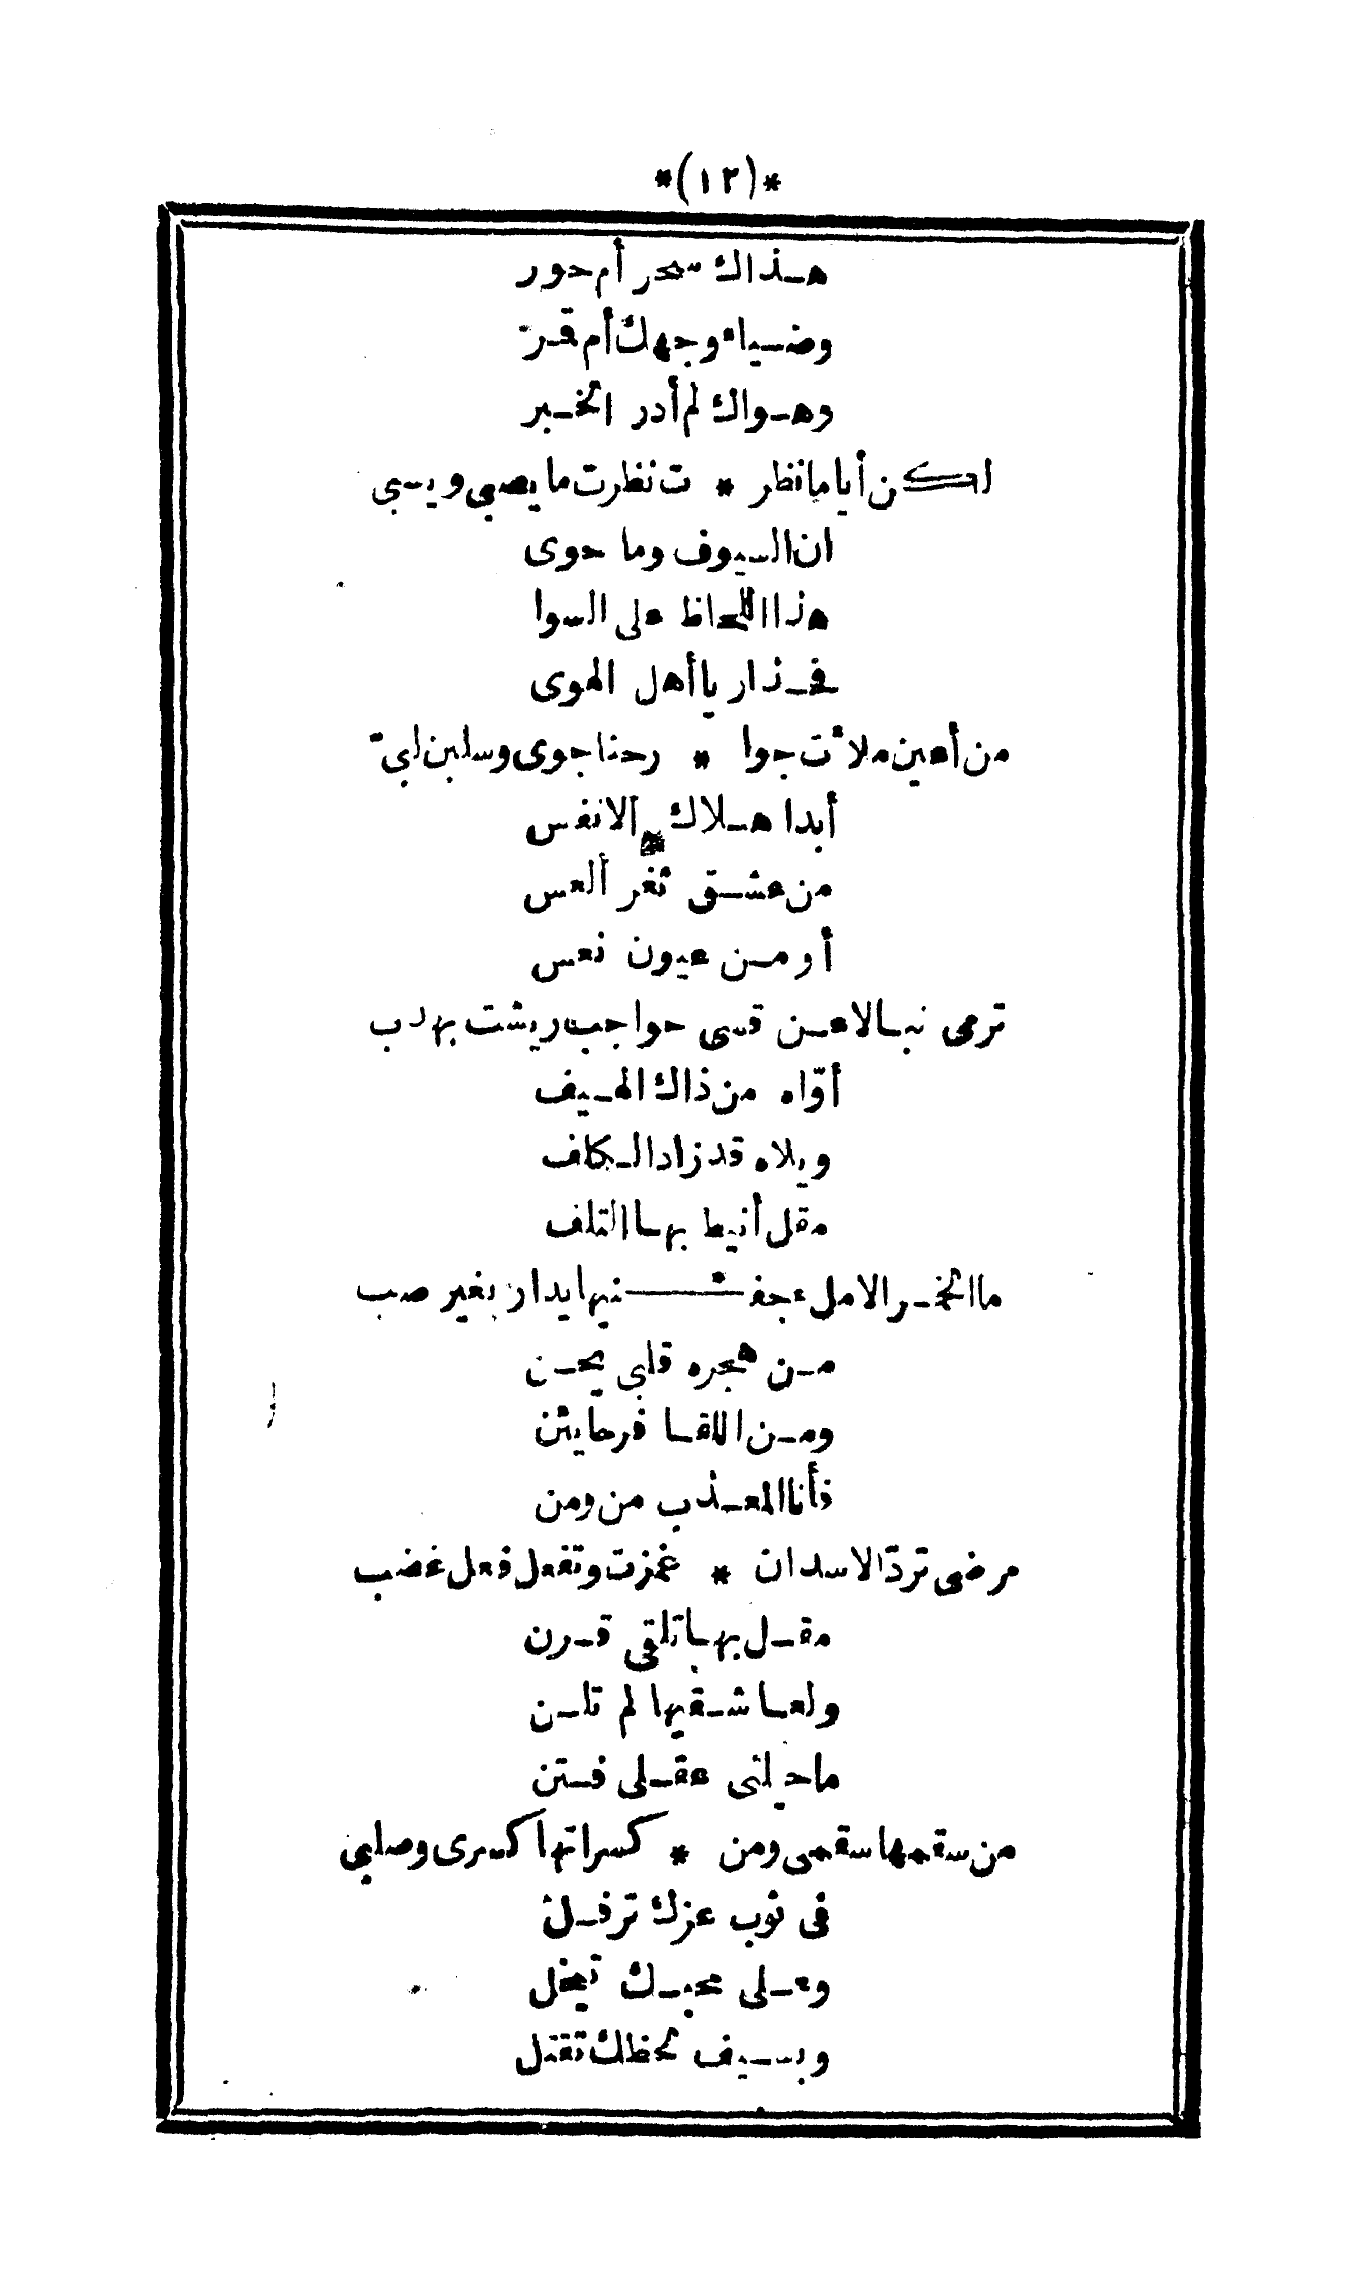 *(١٢)*
هذاك سحر أم حور
وضياء وجهك أم قر
وهواك لم أدر الخبر
لكن أيا ما نظر * ت نظرت ما يصبى ويسبى
ان السيوف وما حوى
هذا اللحاظ على السوا
فحذار يا أهل الهوى
من أعين ملأت جوا * رحنا جوى وسلبن لبى
أبدا هلاك الانفس
من عشق ثغر ألعس
أو من عيون نعس
ترمى نبالا عن قسى حواجب ريشت بهدب
أوّاه من ذاك الهيف
ويلاه قد زاد الكلف
مقل أنيط بها التلف
ما الخمر الا ملء جفنيها يدار بغير صب
من هجره قلبى يحن
ومن اللقا فرحا يئن
فأنا المعذب من ومن
مرضى تردّ الاسد ان * غمزت وتفعل فعل غضب
مقل بها تلقى قرن
ولعاشقيها لم تلن
ما حيلتى عقلى فتن
من سقمها سقمى ومن * كسراتها كسرى وصلبى
فى ثوب عزك ترفل
وعلى محبك تبخل
وبسيف لحظك تقتل